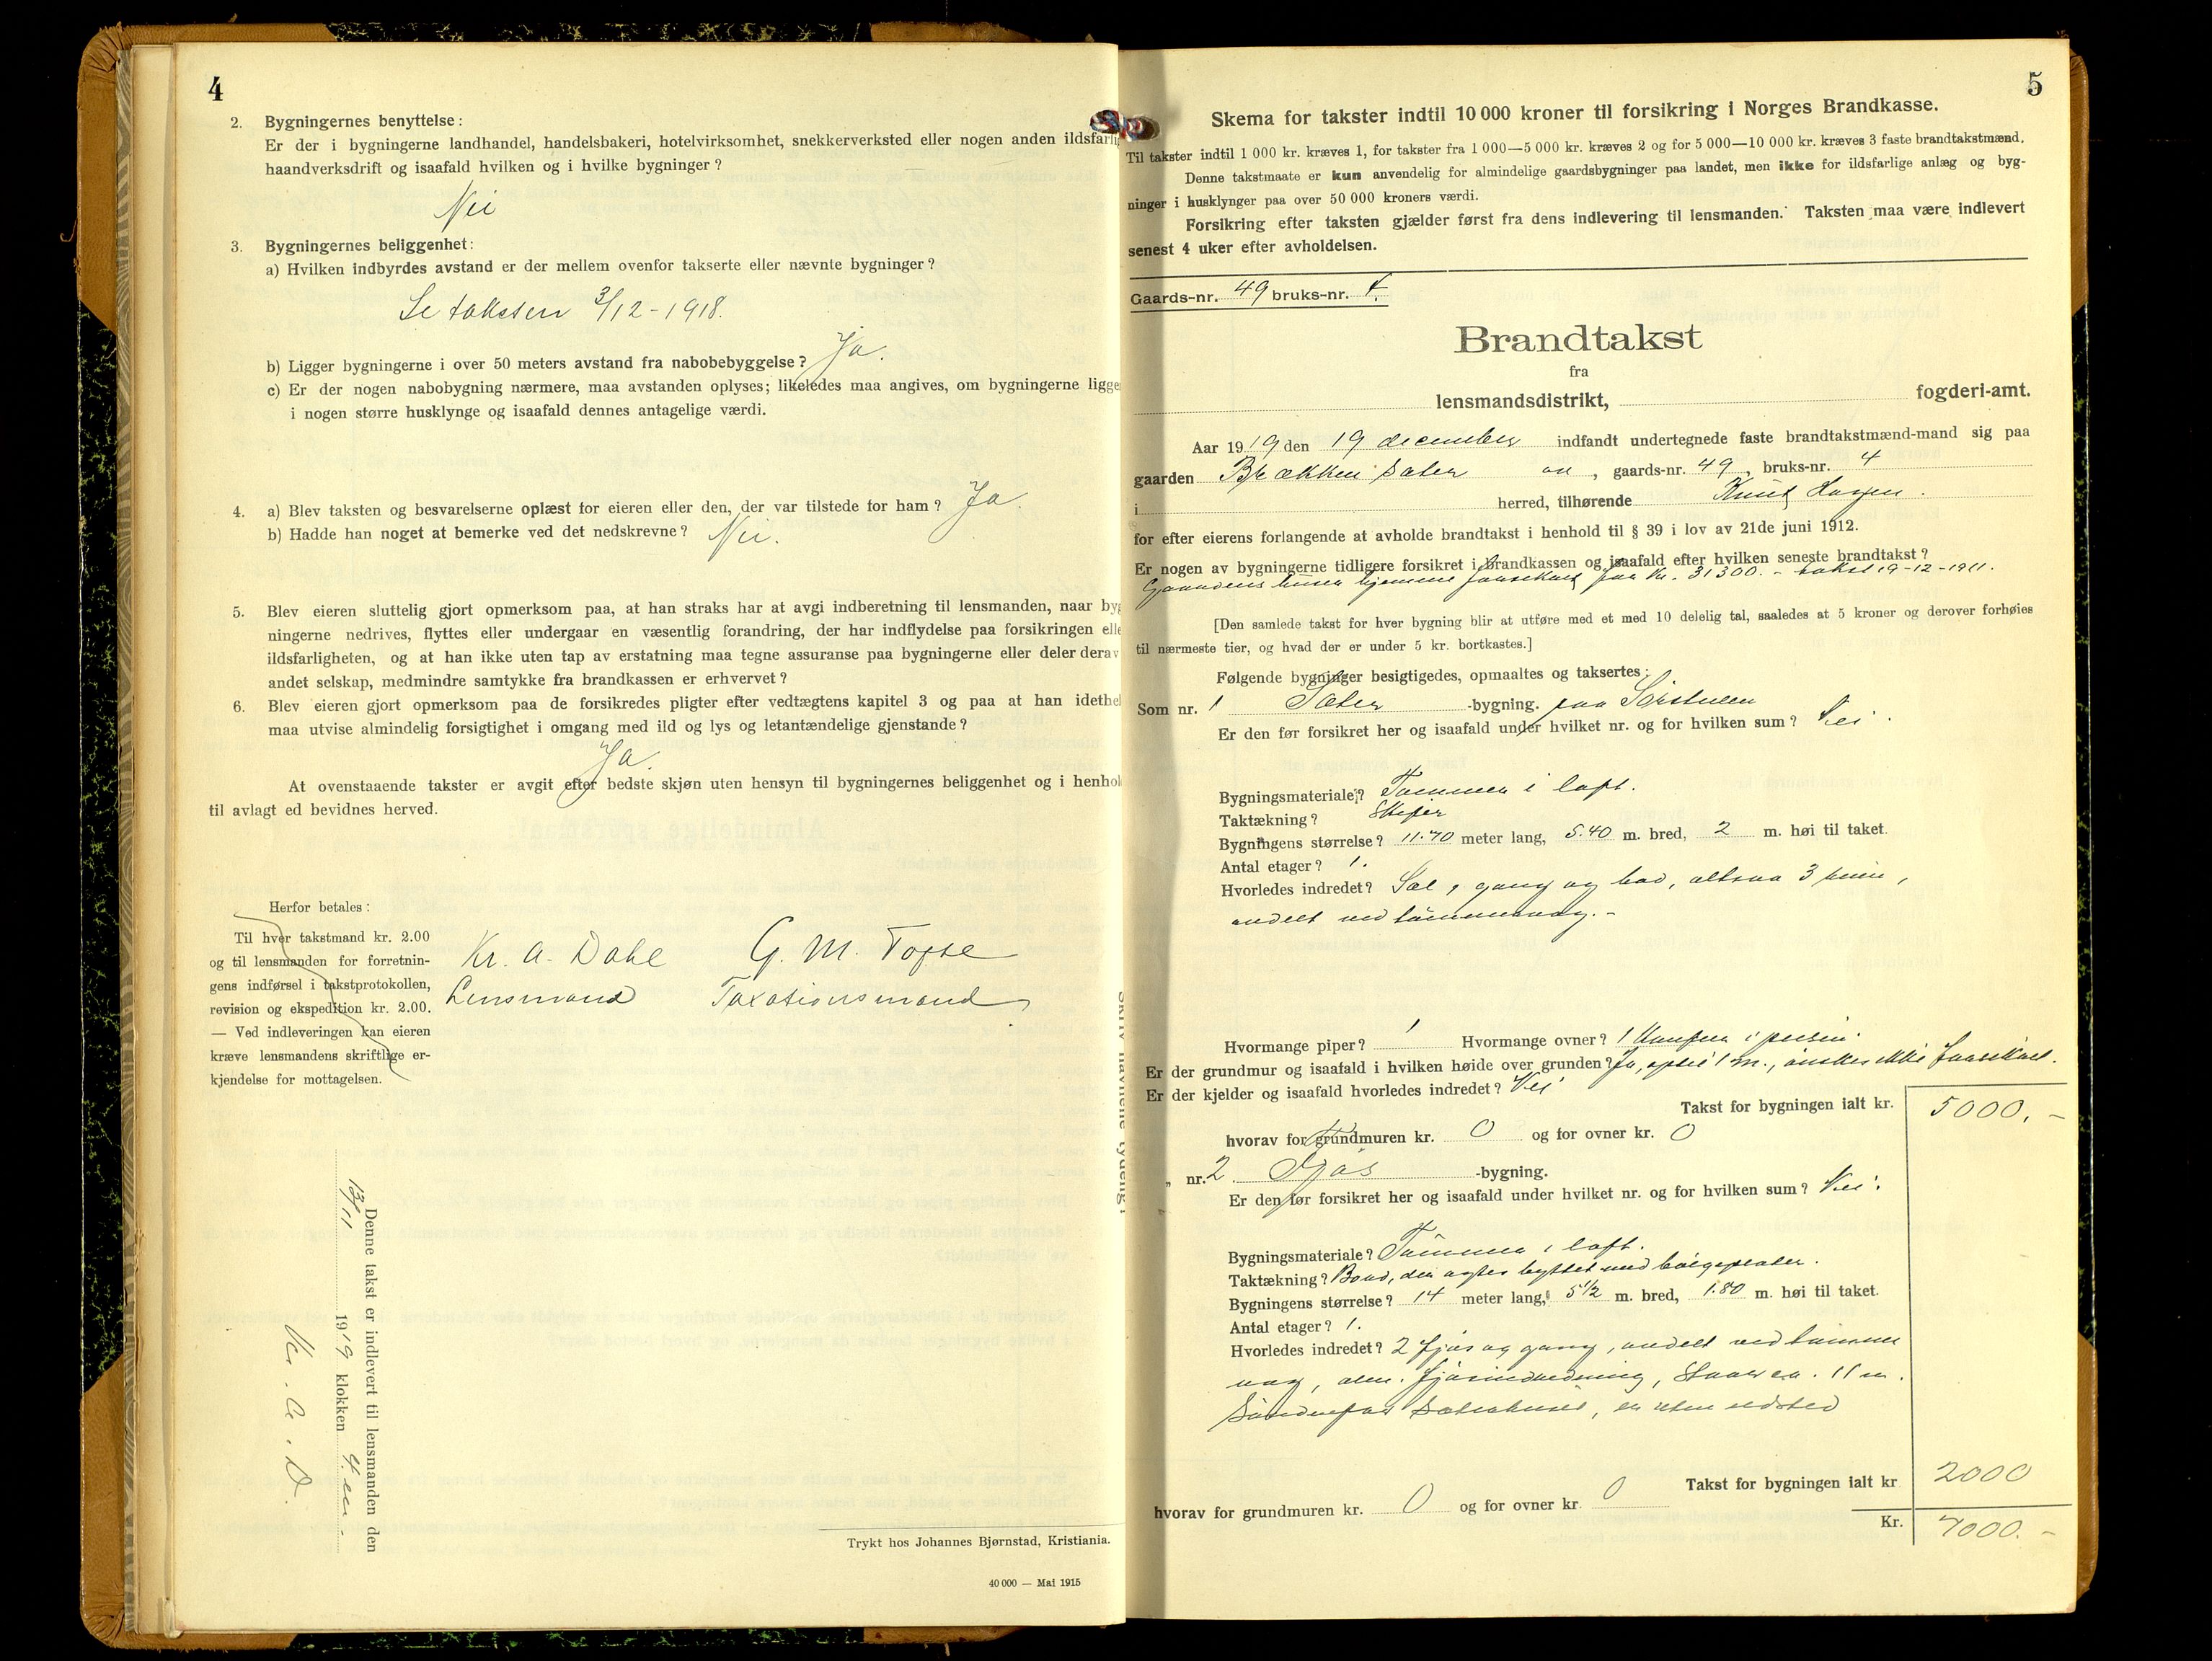 4
2. Bygningernes benyttelse:
Er der i bygningerne landhandel, handelsbakeri, hotelvirksomhet, snekkerverksted eller nogen anden ildsfarlig
haandverksdrift og isaafald hvilken og i hvilke bygninger?
Nei
3. Bygningernes beliggenhet:
a) Hvilken indbyrdes avstand er der mellem ovenfor takserte eller nævnte bygninger?
Se taksten 3/12-1918.
b) Ligger bygningerne i over 50 meters avstand fra nabobebyggelse? Ja.
c) Er der nogen nabobygning nærmere, maa avstanden oplyses; likeledes maa angives, om bygningerne ligge
i nogen større husklynge og isaafald dennes antagelige værdi.
4. a) Blev taksten og besvarelserne oplæst for eieren eller den, der var tilstede for ham? Ja.
b) Hadde han noget at bemerke ved det nedskrevne? Nei.
5. Blev eieren sluttelig gjort opmerksom paa, at han straks har at avgi indberetning til lensmanden, naar byg
ningerne nedrives, flyttes eller undergaar en væsentlig forandring, der har indflydelse paa forsikringen elle
ildsfarligheten, og at han ikke uten tap av erstatning maa tegne assuranse paa bygningerne eller deler derav
andet selskap, medmindre samtykke fra brandkassen er erhvervet?
6. Blev eieren gjort opmerksom paa de forsikredes pligter efter vedtægtens kapitel 3 og paa at han idethel
maa utvise almindelig forsigtighet i omgang med ild og lys og letantændelige gjenstande?
Ja.
At ovenstaaende takster er avgit efter bedste skjøn uten hensyn til bygningernes beliggenhet og i henhol
til avlagt ed bevidnes herved.
Herfor betales:
Til hver takstmand kr. 2.00
og til lensmanden for forretnin-
gens indførsel i takstprotokollen,
revision og ekspedition kr. 2.00.
— Ved indleveringen kan eieren
kræve lensmandens skriftlige er-
kjendelse for mottagelsen.
Kr. A. Dahl G. M. Tofte
Lensmand Taxationsmand
Denne takst er indlevert til lensmanden den
13/11 1919 klokken 4 em.
Kr. A. D.
Trykt hos Johannes Bjørnstad, Kristiania.
40 000 — Mai 1915
5
Skema for takster indtil 10 000 kroner til forsikring i Norges Brandkasse.
Til takster indtil 1 000 kr. kræves 1, for takster fra 1 000—5 000 kr. kræves 2 og for 5 000—10 000 kr. kræves 3 faste brandtakstmænd.
Denne takstmaate er kun anvendelig for almindelige gaardsbygninger paa landet, men ikke for ildsfarlige anlæg og byg-
ninger i husklynger paa over 50 000 kroners værdi.
Forsikring efter taksten gjælder først fra dens indlevering til lensmanden. Taksten maa være indlevert
senest 4 uker efter avholdelsen.
Gaards-nr. 49 bruks-nr. 4.
Brandtakst
fra
lensmandsdistrikt, fogderi-amt.
Aar 1919 den 19 december indfandt undertegnede faste brandtakstmænd-mand sig paa
gaarden Brækken sæter , gaards-nr. 49, bruks-nr. 4
i herred, tilhørende Knut Hagen.
for efter eierens forlangende at avholde brandtakst i henhold til § 39 i lov av 21de juni 1912.
Er nogen av bygningerne tidligere forsikret i Brandkassen og isaafald efter hvilken seneste brandtakst?
Gaardens huser hjemme forsikret for kr. 31300. - takst 19-12-1911.
[Den samlede takst for hver bygning blir at utføre med et med 10 delelig tal, saaledes at 5 kroner og derover forhøies
til nærmeste tier, og hvad der er under 5 kr. bortkastes.]
Følgende bygninger besigtigedes, opmaaltes og taksertes:
Som nr. 1 Sæter -bygning. paa Sørstulen
Er den før forsikret her og isaafald under hvilket nr. og for hvilken sum? Nei.
Bygningsmateriale? Tømmer i laft.
Taktækning? Skifer
Bygningens størrelse? 11.70 meter lang, 5.40 m. bred, 2 m. høi til taket.
Antal etager? 1.
Hvorledes indredet? Sal, gang og bod, altsaa 3 rum,
andelt ved tømmervæg.-
Hvormange piper? 1 Hvormange ovner? 1 Komfur i peisen.
Er der grundmur og isaafald i hvilken høide over grunden? Ja, optil 1 m., ønskes ikke forsikret.
Er der kjelder og isaafald hvorledes indredet? Nei
Takst for bygningen ialt kr. 5000.-
hvorav for grundmuren kr. 0 og for ovner kr. 0
„ nr. 2 Fjøs -bygning.
Er den før forsikret her og isaafald under hvilket nr. og for hvilken sum? Nei.
Bygningsmateriale? Tømmer i laft.
Taktækning? Bord, den agtes byttet med bølgeplater.
Bygningens størrelse? 14 meter lang, 5 1/2 m. bred, 1.80 m. høi til taket.
Antal etager? 1.
Hvorledes indredet? 2 fjøs og gang, andelt ved tømmer
væg, alm. fjøsindredning, staar ca. 11 m.
søndenfor sæterhuset, er uten ildsted
Takst for bygningen ialt kr. 2000
hvorav for grundmuren kr. 0 og for ovner kr. 0
Kr. 7000.-